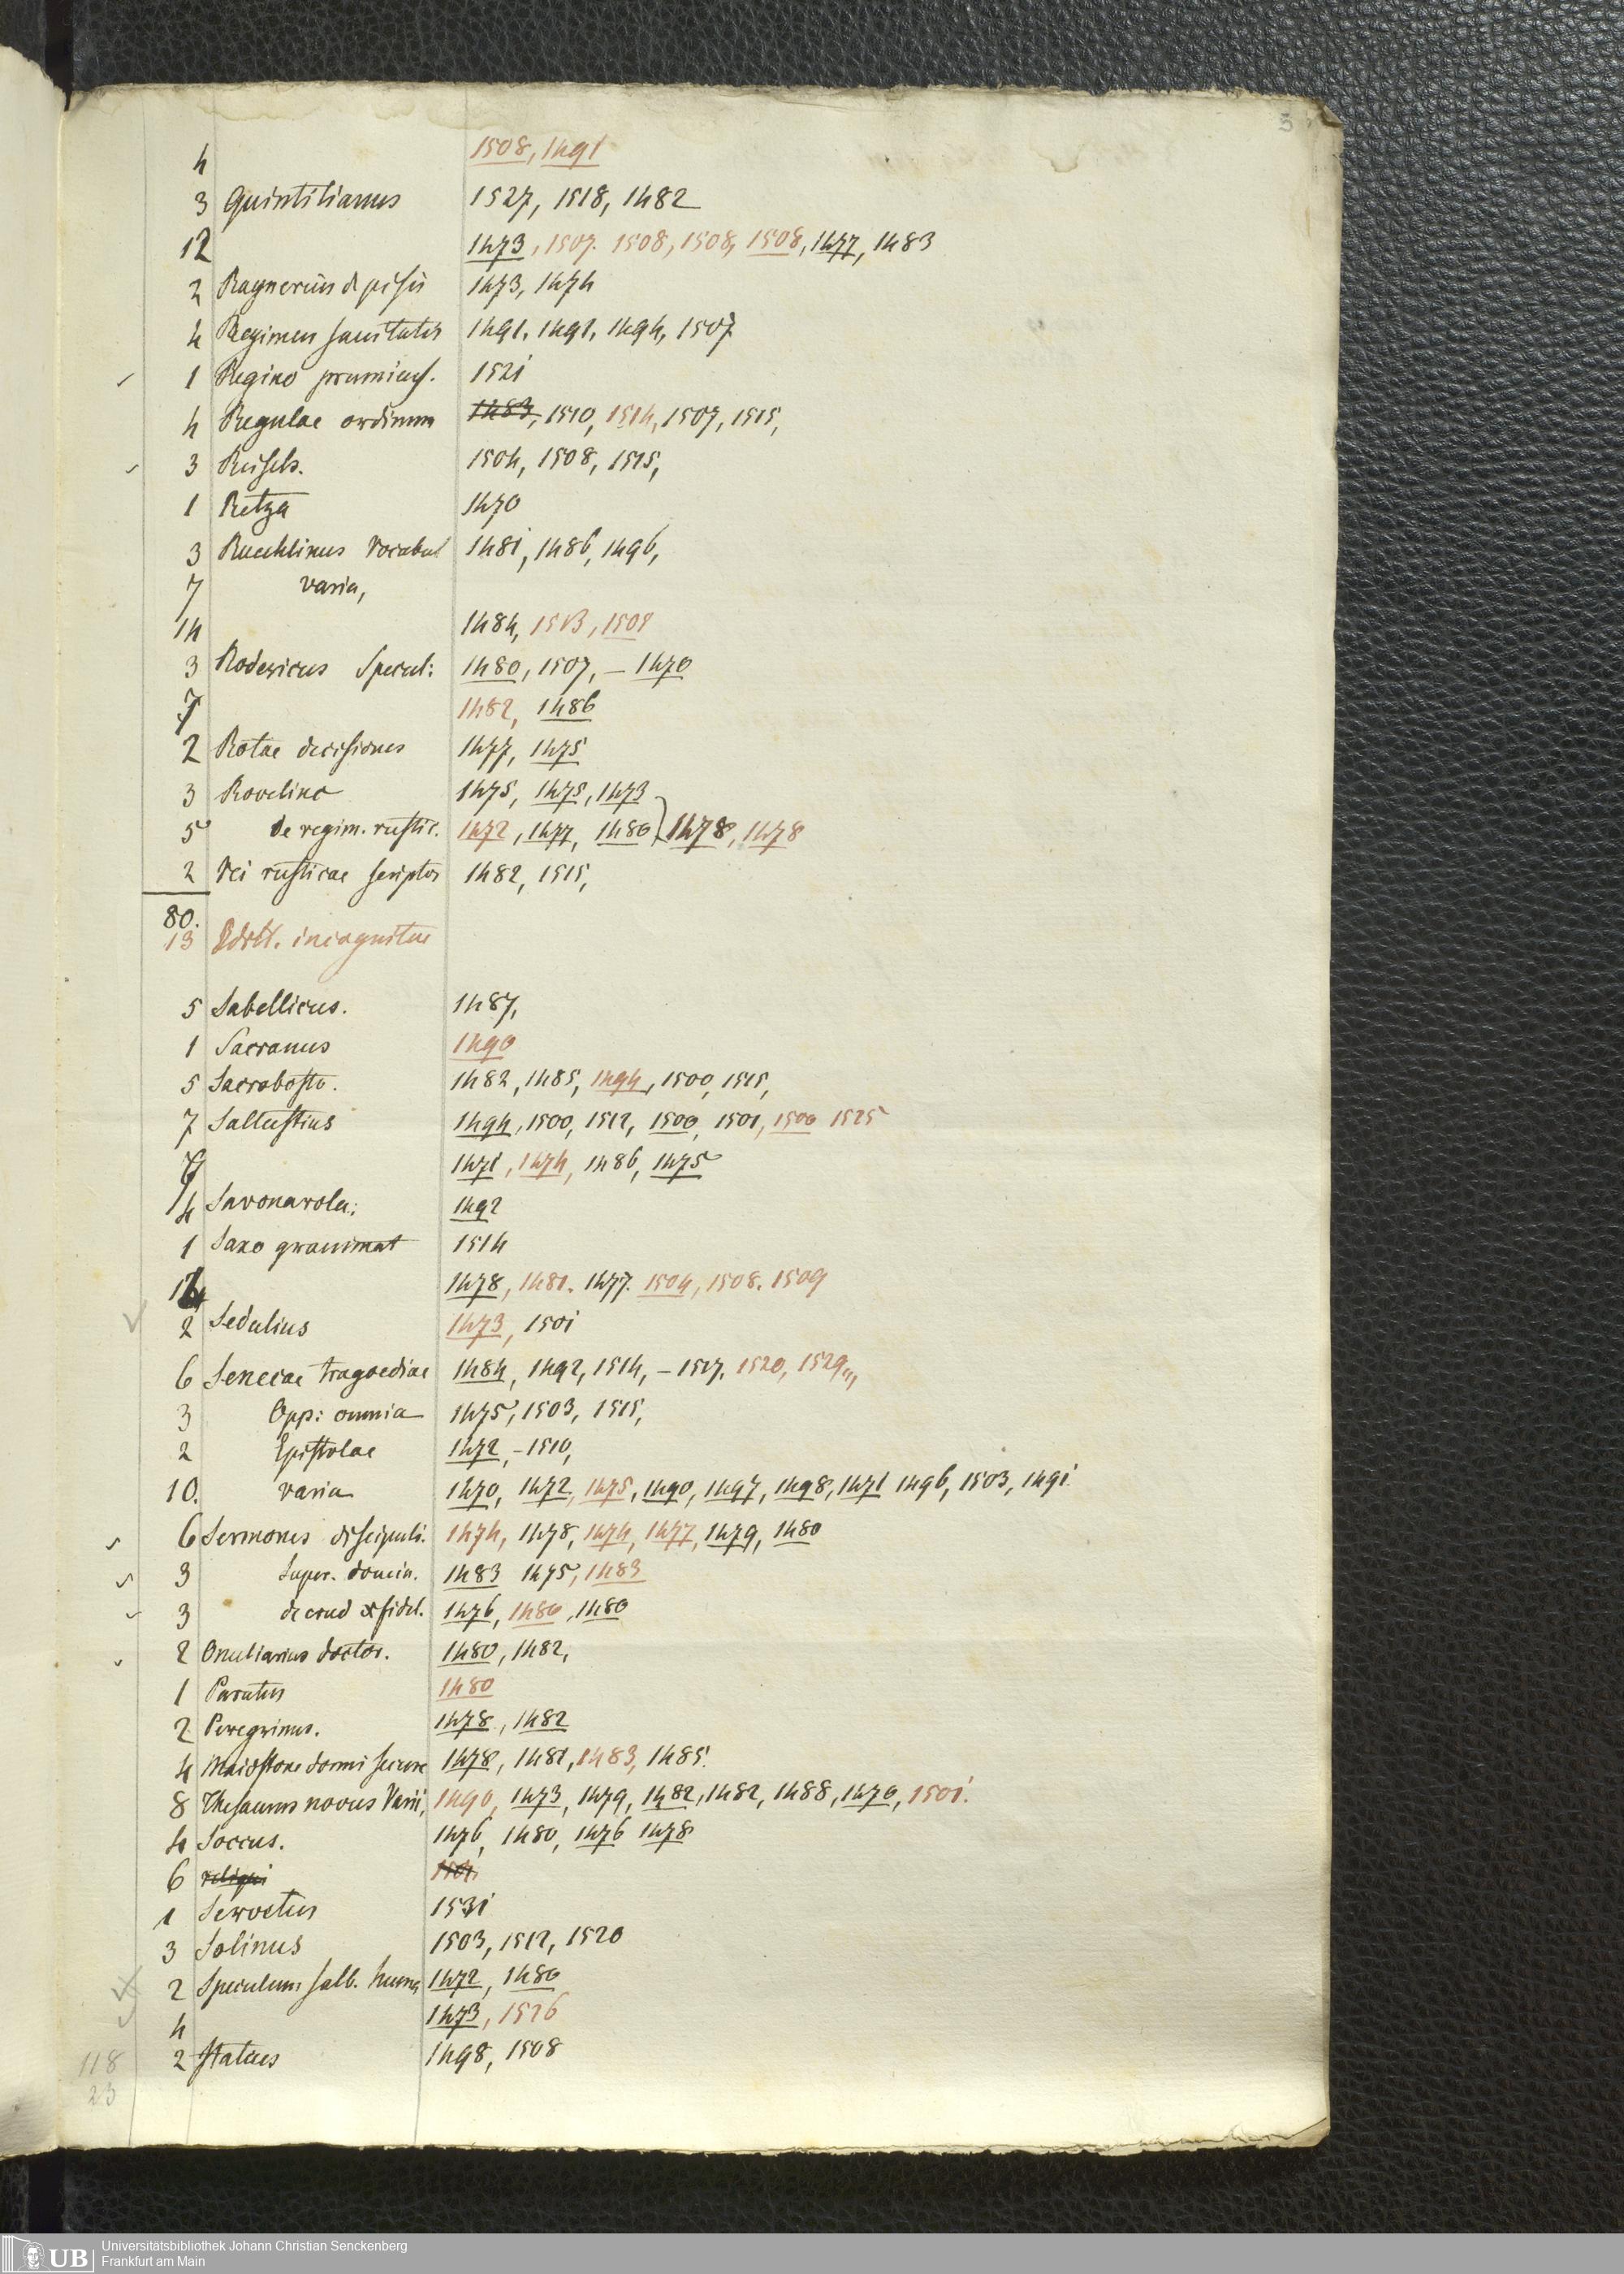 4 1508, 1491
3 Quintilianus 1527, 1518, 1482
12 1473, 1507. 1508, 1508, 1508, 1477, 1483
2 Raynerius d pisis 1473, 1474
4 Regimen sanitatis 1491. 1491. 1494, 1507
1 Regino prumiens. 1521
4 Regulae ordinum 1483, 1510, 1514, 1507, 1515,
3 Reisch. 1504, 1508, 1515,
1 Retza 1470
3 Ruchlinus Vocabul 1481, 1486, 1496,
7 varia,
14 1484, 1513, 1509
3 Rodericus Specul: 1480, 1507, – 1470
7 1482, 1486
2 Rotae decisiones 1477, 1475
3 Rovelinc 1475, 1475, 1473
5 de regim. rustic. 1472, 1477, 1480 1478, 1478
2 Rei rusticae scriptor 1482, 1515,
80.
13 incognitus
5 Sabellicus. 1487,
1 Sacranus 1490
5 Sacrobosto. 1482, 1485, 1494, 1500, 1515,
7 Sallustius 1494, 1500, 1512, 1500, 1501, 1500 1525
1471, 1474, 1486, 1475
4 Savonarola: 1492
1 Saxo grammat 1514
1478, 1481. 1477. 1504, 1508. 1509
2 Sedulius 1473, 1501
6 Senecae tragoediae 1484, 1492, 1514, – 1517. 1520, 1529,,,
3 Opp: omnia 1475, 1503, 1515,
2 Epistolae 1472, – 1510,
10. varia 1470, 1472, 1475, 1490, 1497, 1498, 1471 1496, 1503, 1491.
6 Sermones discipuli. 1474, 1478, 1474, 1477, 1479, 1480
3 Super. domin. 1483 1475, 1483
3 de erud xfidel. 1476, 1480, 1480
2 doctor. 1480, 1482,
1 Paratus 1480
2 Peregrinus. 1478, 1482
4 dormi secure 1478, 1481, 1483, 1485.
8 Thesaurus novus Varii, 1490, 1473, 1479, 1482, 1482, 1488, 1476, 1501.
4 Soccus. 1476, 1480, 1476 1478
6 reliqui
1 Servetus 1531
3 Solinus 1503, 1512, 1520
2 Speculum salv. human 1472, 1480
4 1473, 1526
2 Statius 1498, 1508
118
23
UB Universitätsbibliothek Johann Christian Senckenberg
Frankfurt am Main